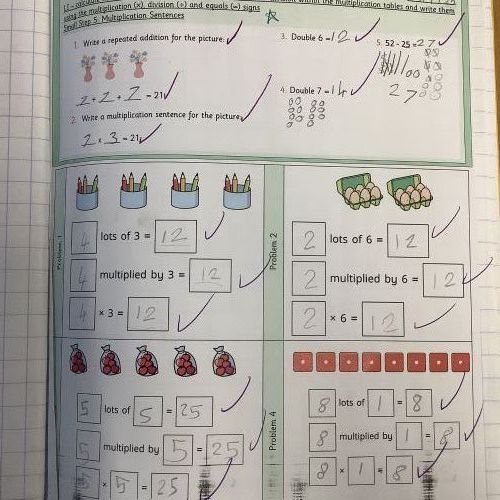 division within the multiplication tables and write them
using the multiplication (×), division (÷) and equals (=) signs
Small Step 5: Multiplication Sentences
1. Write a repeated addition for the picture:
7 + 7 + 7 = 21
2. Write a multiplication sentence for the picture:
7 × 3 = 21
3. Double 6 = 12
4. Double 7 = 14
5. 52 - 25 = 27
27
Problem 1
4 lots of 3 = 12
4 multiplied by 3 = 12
4 × 3 = 12
Problem 2
2 lots of 6 = 12
2 multiplied by 6 = 12
2 × 6 = 12
5 lots of 5 = 25
5 multiplied by 5 = 25
5 × 5 = 25
Problem 4
8 lots of 1 = 8
8 multiplied by 1 = 8
8 × 1 = 8